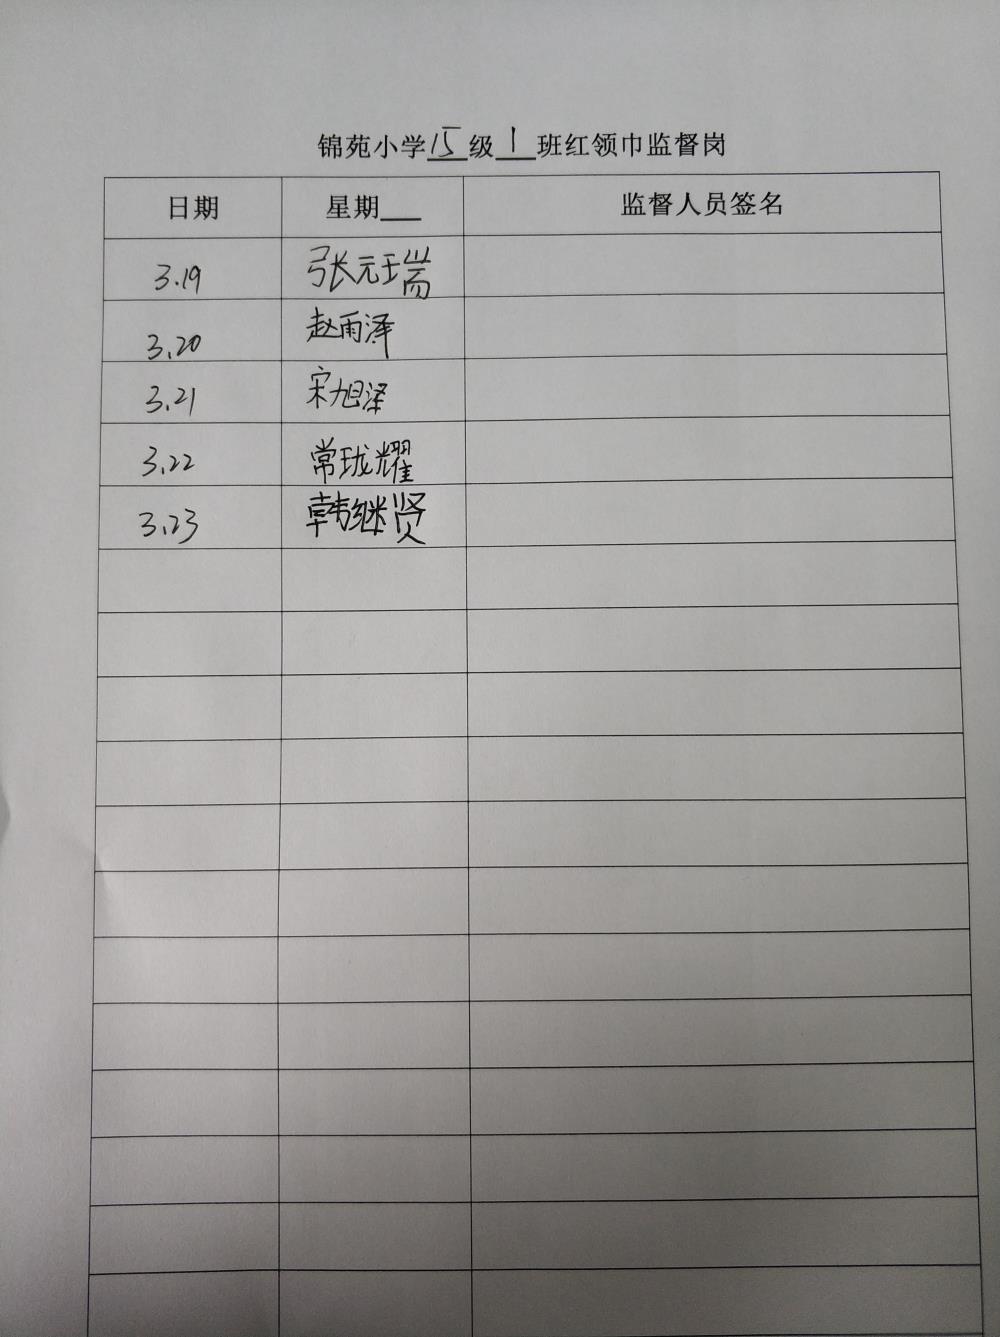 锦苑小学15级1班红领巾监督岗
日期 星期 监督人员签名
3.19 张元瑞
3.20 赵雨泽
3.21 宋旭泽
3.22 常珑耀
3.23 韩继贤